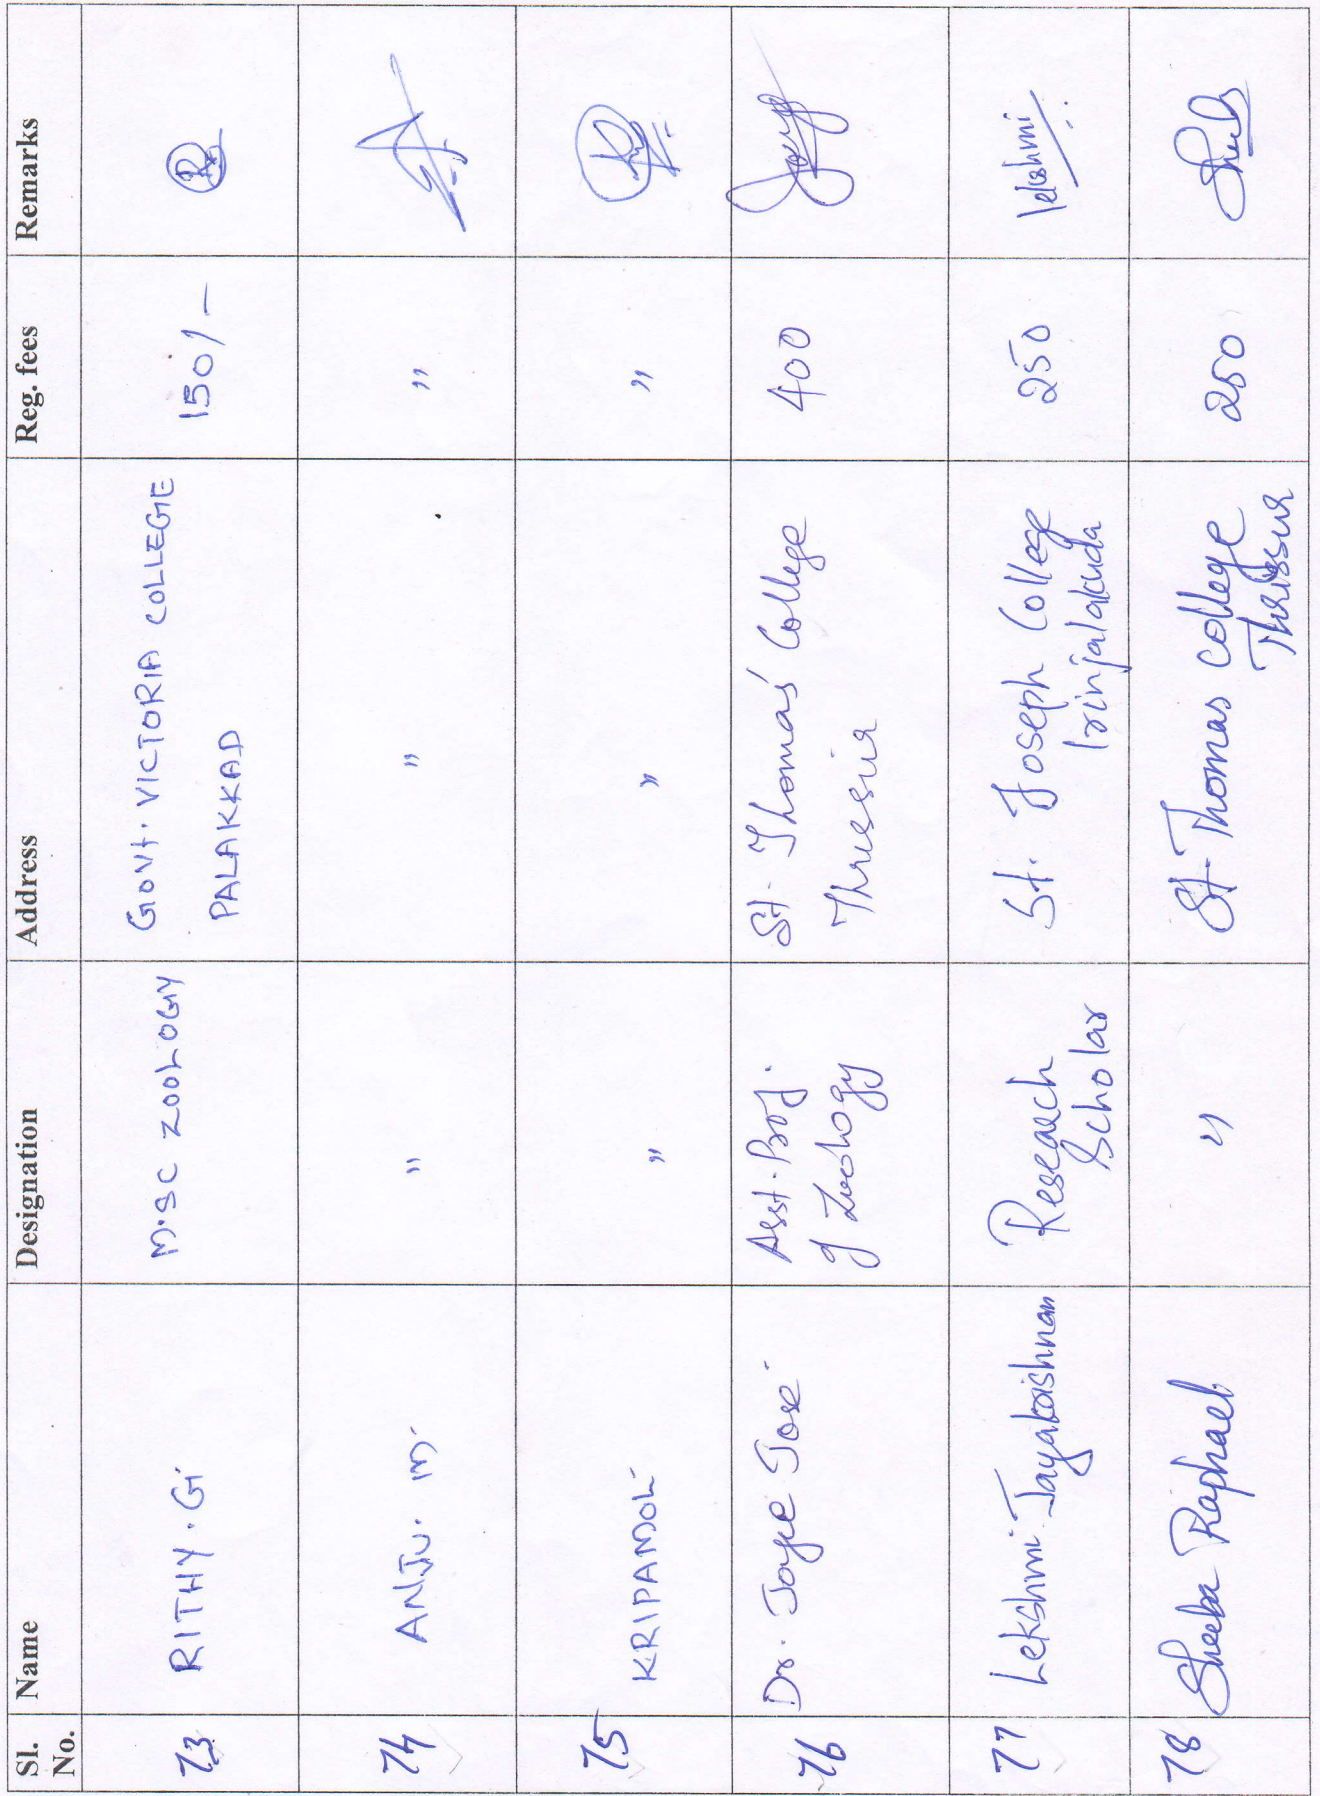 Sl. No. Name Designation Address Reg. fees Remarks
73 RITHY. G M.SC ZOOLOGY GOVT. VICTORIA COLLEGE PALAKKAD 150/-
74 ANJU. M. " " "
75 KRIPAMOL " " "
76 Dr. Joyce Jose Asst. Prof. of Zoology St. Thomas' College Thrissur 400
77 Lekshmi Jayakrishnan Research Scholar St. Joseph College Irinjalakuda 250 lekshmi
78 Sheeba Raphael " St. Thomas College Thrissur 250